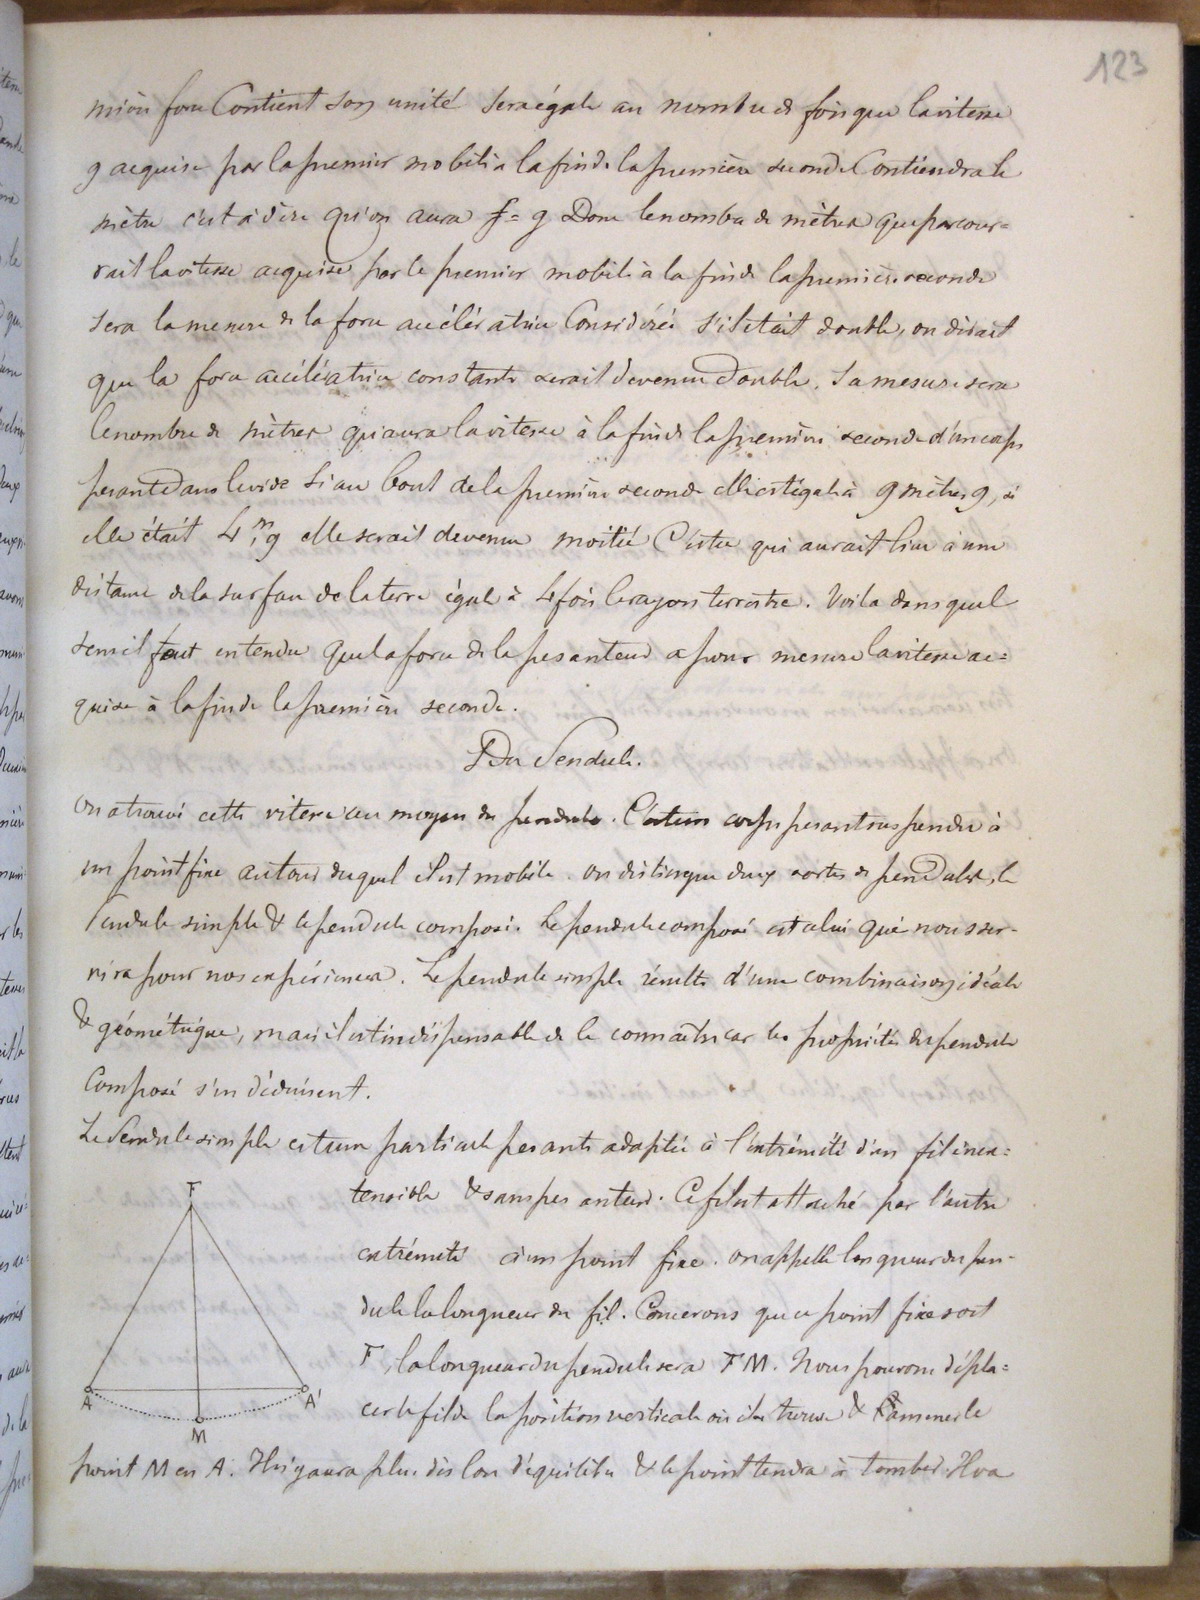 123
mière force contient son unité sera égale au nombre de fois que la vitesse
g acquise par le premier mobile à la fin de la première seconde contiendra le
mètre c'est à dire qu'on aura f = g Donc le nombre de mètres que parcour=
rait la vitesse acquise par le premier mobile à la fin de la première seconde
sera la mesure de la force accélératrice considérée s'il était double, on dirait
que la force accélératrice constante serait devenue double. Sa mesure sera
le nombre de mètres qui aura la vitesse à la fin de la première seconde d'un corps
pesant dans le vide si au bout de la première seconde elle est égale à 9 mètres 9, si
elle était 4,m9 elle serait devenue moitié C'est ce qui aurait lieu à une
distance de la surface de la terre égale à 4 fois le rayon terrestre. Voila dans quel
sens il faut entendre que la force de la pesanteur a pour mesure la vitesse ac=
quise à la fin de la première seconde.
Du Pendule.
On a trouvé cette vitesse au moyen du pendule. C'est un corps pesant suspendu à
un point fixe autour duquel il est mobile. on distingue deux sortes de pendules, le
Pendule simple & le pendule composé. Le pendule composé est celui qui nous ser-
vira pour nos expériences. Le pendule simple résulte d'une combinaison idéale
& géométrique, mais il est indispensable de le connaître car les propriétés du pendule
composé s'en déduisent.
Le Pendule simple est une particule pesante adaptée à l'extrémité d'un fil inex=
tensible & sans pesanteur. Ce fil est attaché par l'autre
extrémité à un point fixe. on appelle longueur du pen-
dule la longueur du fil. Concevons que ce point fixe soit
F, la longueur du pendule sera FM. Nous pouvons dépla=
cer le fil de la position verticale où il se trouve & l'amener le
point M en A. Il n'y aura plus dès lors d'équilibre & le point tendra à tomber. Il va
F
A
A'
M